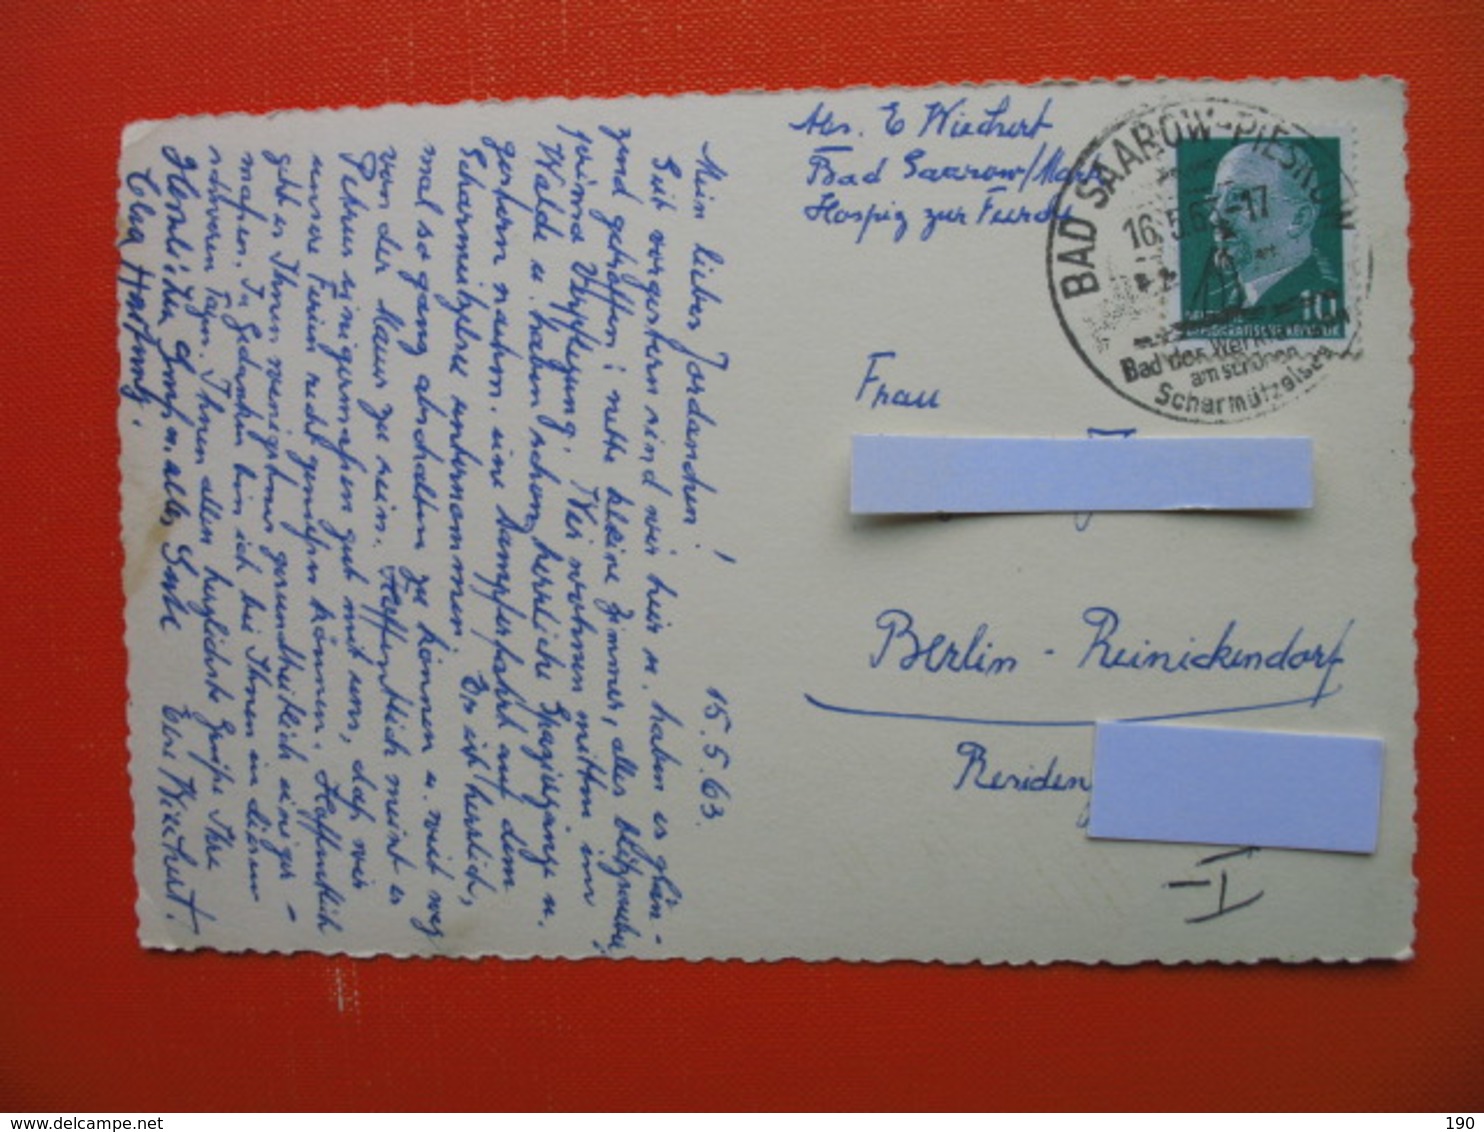 15.5.63.
Mein liebes Jordanchen!
Seit vorgestern sind wir hier u. haben es glän-
zend getroffen; nette kleine Zimmer, alles blitzsauber,
prima Verpflegung. Wir wohnen mitten im
Walde u. haben schon herrliche Spaziergänge u.
gestern nachm. eine Dampferfahrt auf dem
Scharmützelsee unternommen. Es ist herrlich,
mal so ganz abschalten zu können u. weit weg
von der Maur zu sein. Hoffentlich meint es
Petrus einigermaßen gut mit uns, daß wir
unsere Ferien recht genießen können. Hoffentlich
geht es Ihnen wenigstens gesundheitlich einiger-
maßen. In Gedanken bin ich bei Ihnen in diesen
schweren Tagen. Ihnen allen herzlichste Grüße Ihre
Else Wiechert.
Herzliche Grüße u. alles Gute
Hartung.
Abs. E Wiechert
Bad Saarow/Mark
Hospiz zur Furche
BAD SAAROW-PIESKOW
16.5.63-17
Bad der Werktätigen
am schönen
Scharmützelsee
10
DEUTSCHE
DEMOKRATISCHE REPUBLIK
Frau
Berlin - Reinickendorf
Residenz
I
delcampe.net
190